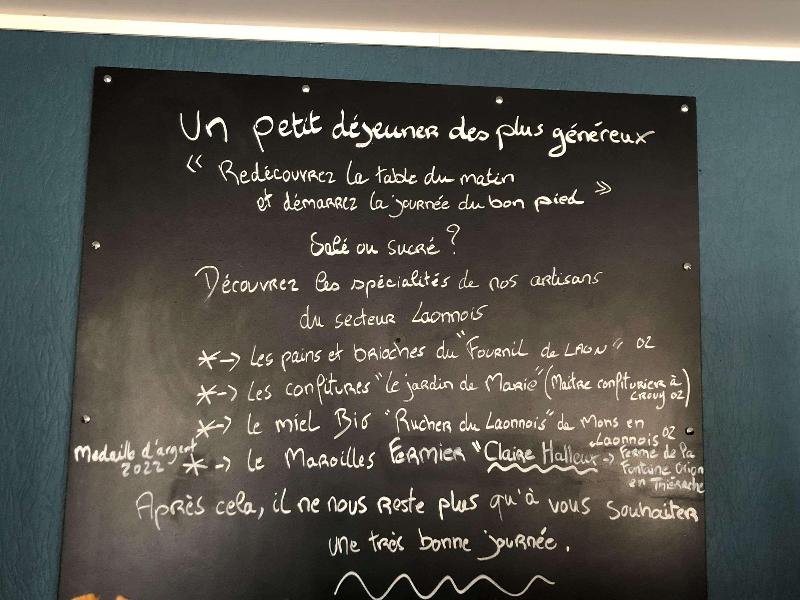 Un petit déjeuner des plus généreux
« Redécouvrez la table du matin
et démarrez la journée du bon pied »
Salé ou sucré ?
Découvrez les spécialités de nos artisans
du secteur Laonnois
*-> Les pains et brioches du "Fournil de LAON" 02
*-> Les confitures "le jardin de Marie" (Maître confiturier à
CROUY 02)
*-> le miel Bio "Rucher du Laonnois" de Mons en
Laonnois 02
Medaille d'argent
2022
*-> le Maroilles Fermier "Claire Halleux -> Ferme de la
Fontaine Orion
en Thiérache
Après cela, il ne nous reste plus qu'à vous souhaiter
une très bonne journée.